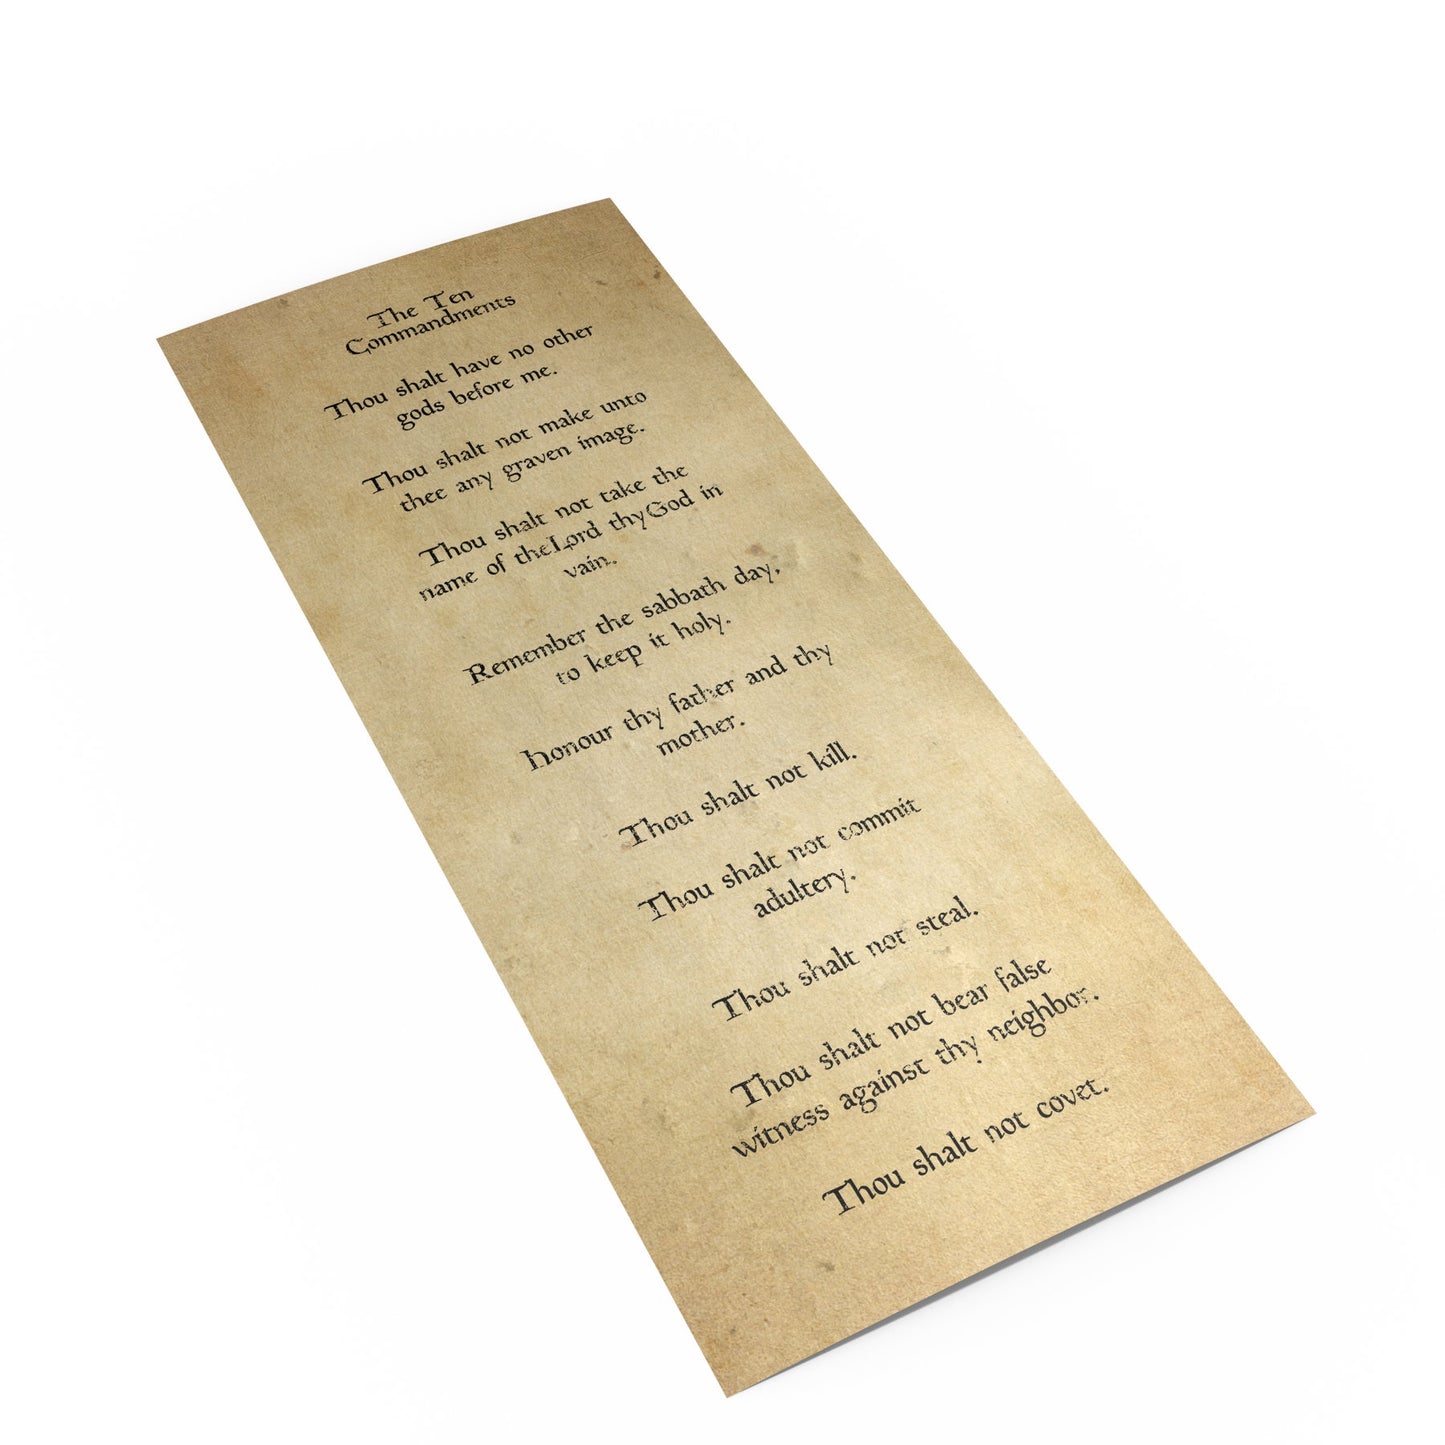 The Ten
Commandments
Thou shalt have no other
gods before me.
Thou shalt not make unto
thee any graven image.
Thou shalt not take the
name of theLord thyGod in
vain.
Remember the sabbath day,
to keep it holy.
Honour thy father and thy
mother.
Thou shalt not kill.
Thou shalt not commit
adultery.
Thou shalt not steal.
Thou shalt not bear false
witness against thy neighbor.
Thou shalt not covet.